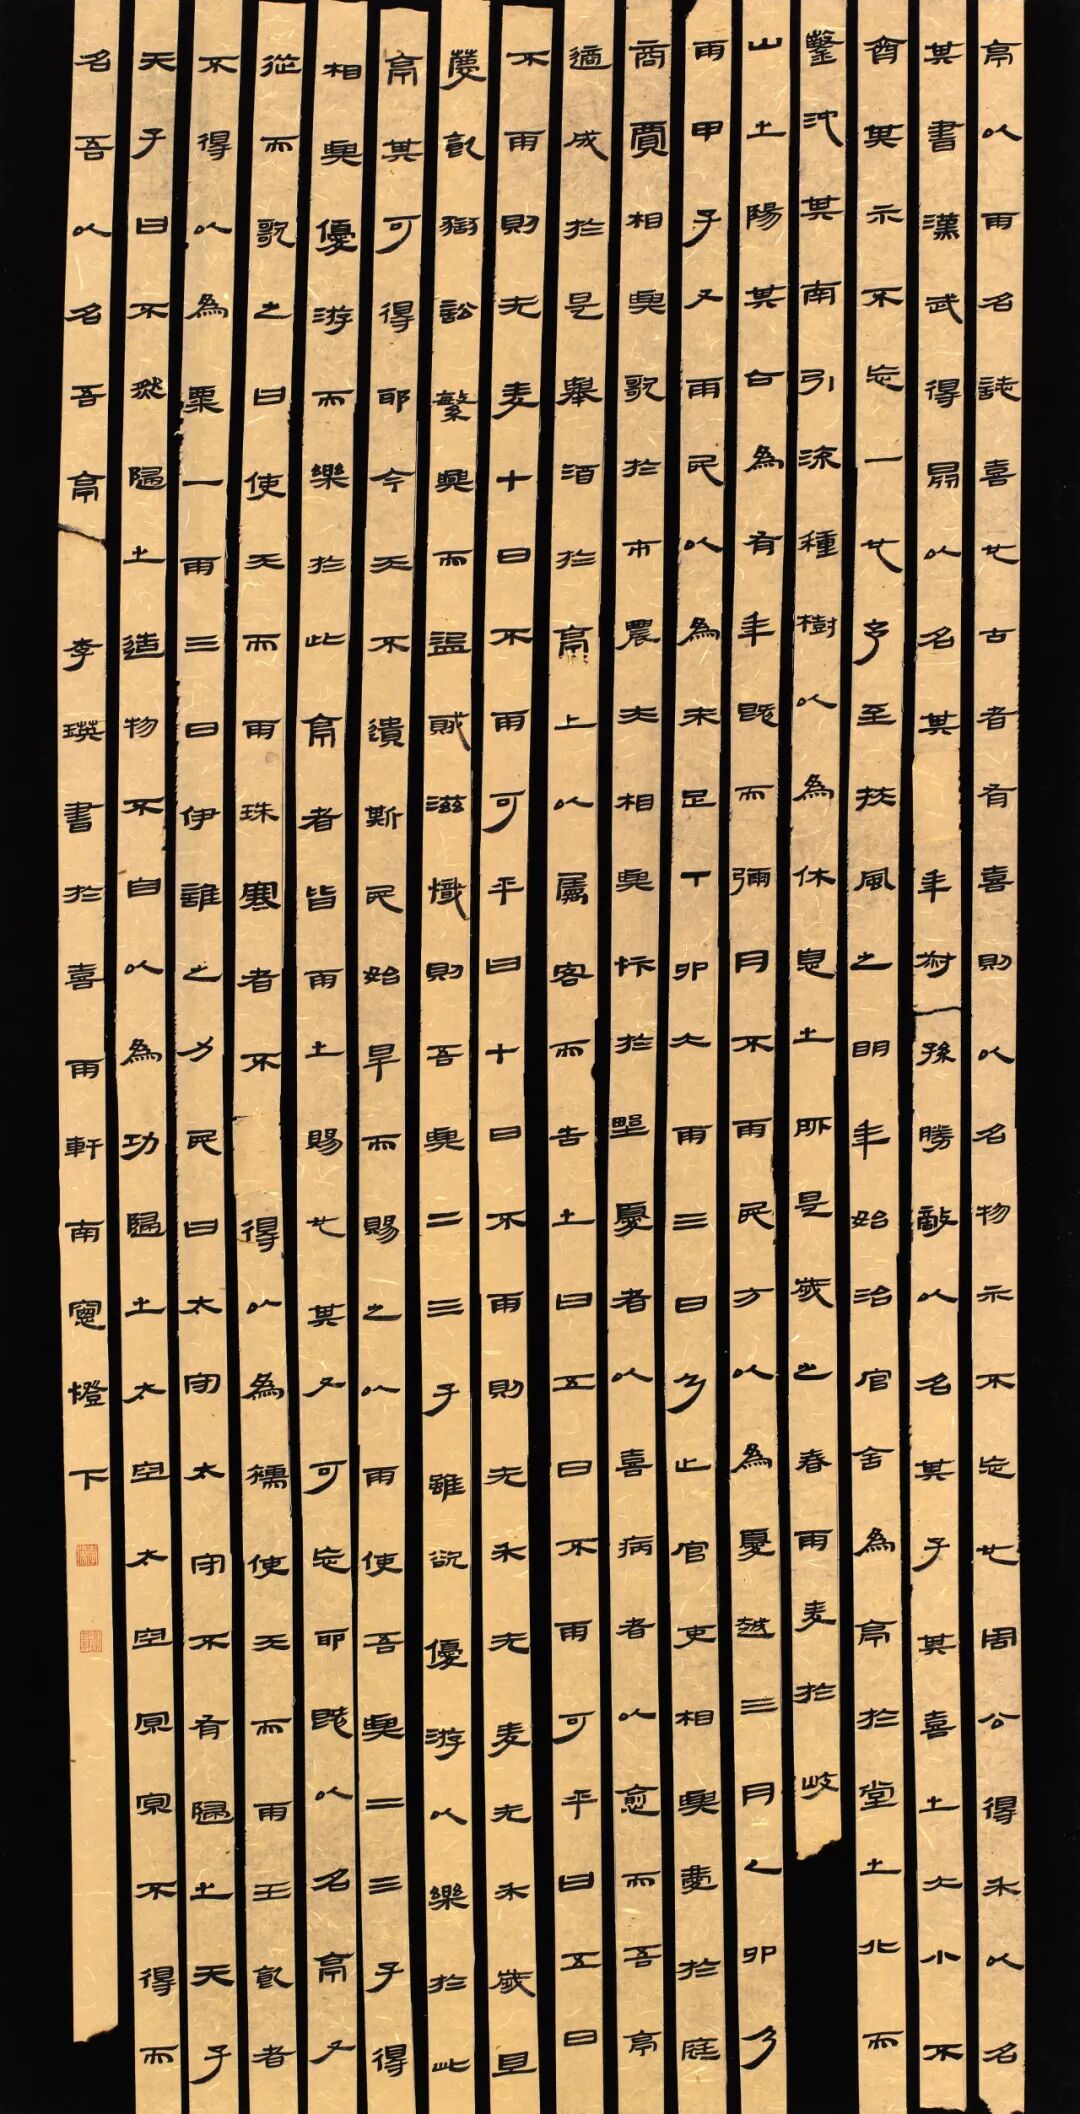 亭以雨名誌喜也古者有喜則以名物示不忘也周公得禾以名
其書漢武得鼎以名其年叔孫勝敵以名其子其喜之大小不
齊其示不忘一也予至扶風之明年始治官舍為亭於堂之北而
鑿池其南引流種樹以為休息之所是歲之春雨麥於岐
山之陽其占為有年既而彌月不雨民方以為憂越三月乙卯乃
雨甲子又雨民以為未足丁卯大雨三日乃止官吏相與慶於庭
商賈相與歌於市農夫相與忭於野憂者以喜病者以愈而吾亭
適成於是舉酒於亭上以屬客而告之曰五日不雨可乎曰五日
不雨則无麥十日不雨可乎曰十日不雨則无禾无麥无禾歲且
薦飢獄訟繁興而盜賊滋熾則吾與二三子雖欲優游以樂於此
亭其可得耶今天不遺斯民始旱而賜之以雨使吾與二三子得
相與優游而樂於此亭者皆雨之賜也其又可忘耶既以名亭又
從而歌之曰使天而雨珠寒者不得以為襦使天而雨玉飢者
不得以為粟一雨三日伊誰之力民曰太守太守不有歸之天子
天子曰不然歸之造物不自以為功歸之太空太空冥冥不得而
名吾以名吾亭 李瑛書於喜雨軒南窗燈下